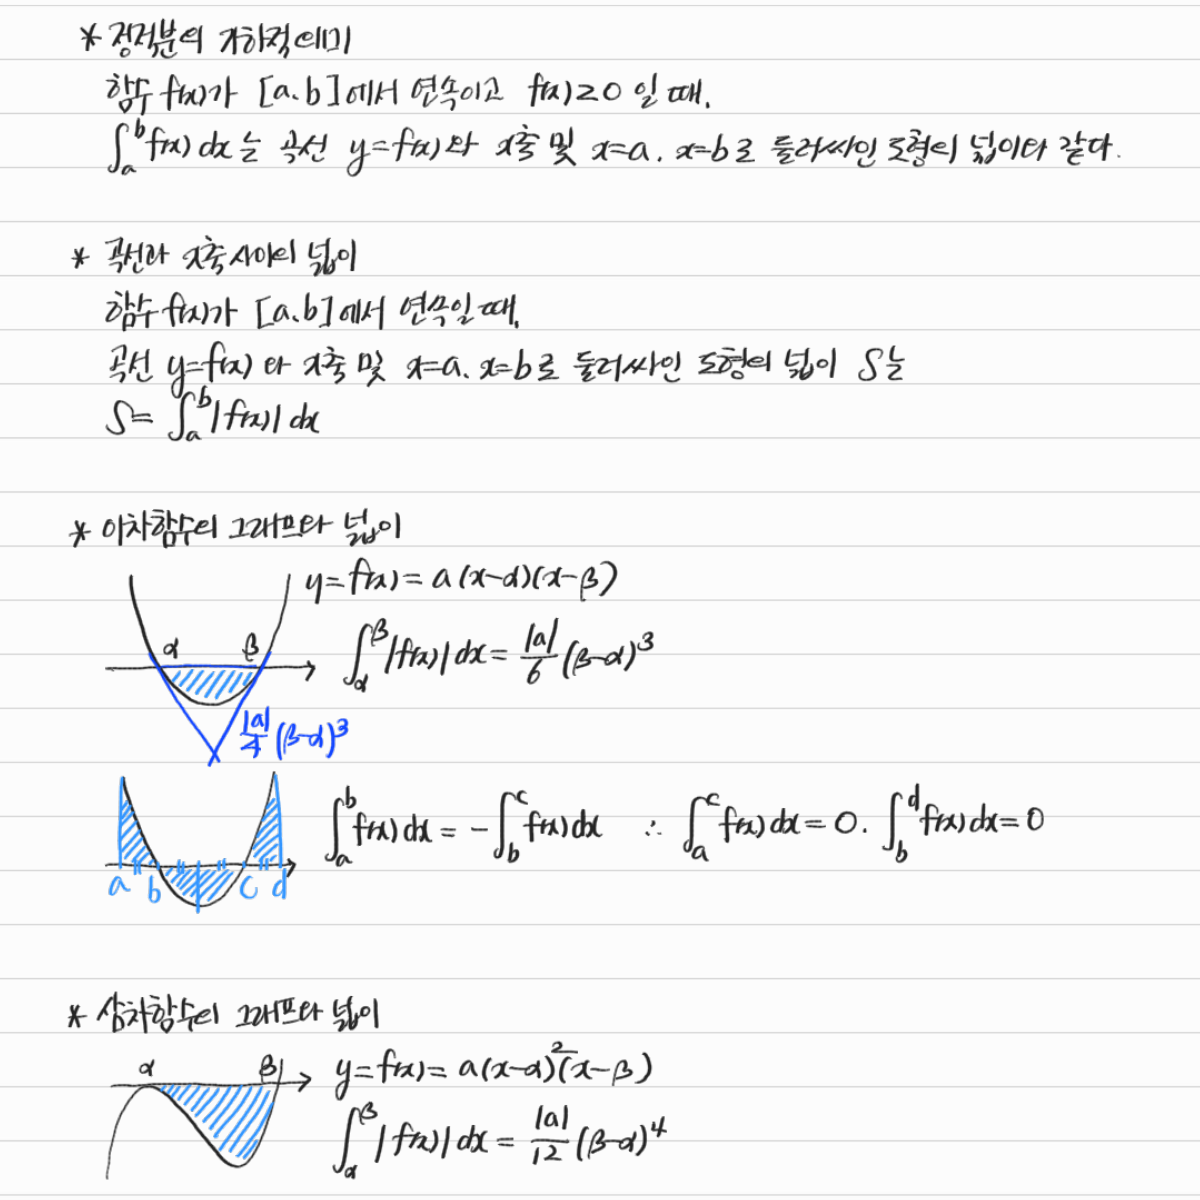 * 정적분의 기하적 의미
함수 f(x)가 [a, b]에서 연속이고 f(x)≥0 일 때,
∫_a^b f(x) dx는 곡선 y=f(x)와 x축 및 x=a, x=b로 둘러싸인 도형의 넓이와 같다.
* 곡선과 x축 사이의 넓이
함수 f(x)가 [a, b]에서 연속일 때,
곡선 y=f(x)와 x축 및 x=a, x=b로 둘러싸인 도형의 넓이 S는
S= ∫_a^b |f(x)| dx
* 이차함수의 그래프와 넓이
y=f(x)=a(x-α)(x-β)
α β
∫_α^β |f(x)| dx = |a|/6 (β-α)^3
|a|/4 (β-α)^3
∫_a^b f(x) dx = -∫_b^c f(x) dx ∴ ∫_a^c f(x) dx = 0. ∫_b^d f(x) dx = 0
a b c d
* 삼차함수의 그래프와 넓이
α β
y=f(x)=a(x-α)^2(x-β)
∫_α^β |f(x)| dx = |a|/12 (β-α)^4